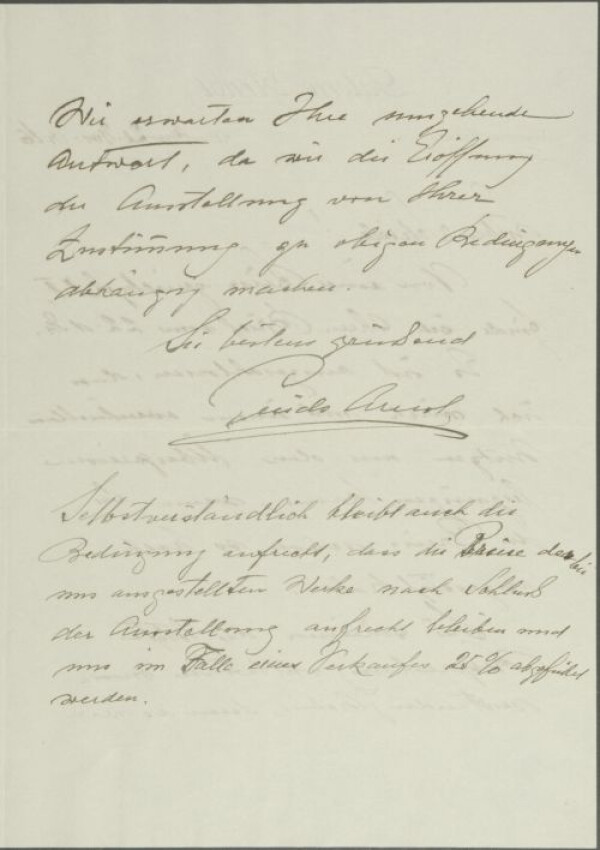 Wir erwarten Ihre umgehende
Antwort, da wir die Eröffnung
der Ausstellung von Ihrer
Zustimmung zu obigen Bedingungen
abhängig machen.
Sie bestens grüßend
Guido Arnot
Selbstverständlich bleibt auch die
Bedingung aufrecht, dass die Preise der bei
uns ausgestellten Werke nach Schluß
der Ausstellung aufrecht bleiben und
uns im Falle eines Verkaufes 25% abgeführt
werden.